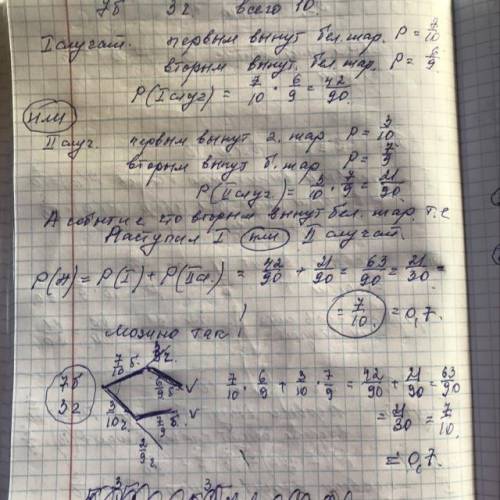 7б 3г всего 10.
I случай. первым вынут бел. шар. P = 7/10
вторым вынут. бел. шар. P = 6/9
P(I случ) = 7/10 · 6/9 = 42/90.
или
II случ. первым вынут г. шар P = 3/10
вторым вынут б. шар P = 7/9
P(II случ) = 3/10 · 7/9 = 21/90.
A событие что вторым вынут бел. шар. т.е
Наступил I или II случай.
P(A) = P(I) + P(II сл.) = 42/90 + 21/90 = 63/90 = 21/30 =
= 7/10. = 0,7.
Можно так!
7б 3г
7/10 б. 6/9 б. v
3/10 г. 7/9 б. v
2/9 г.
7/10 · 6/9 + 3/10 · 7/9 = 42/90 + 21/90 = 63/90
= 21/30 = 7/10.
= 0,7.